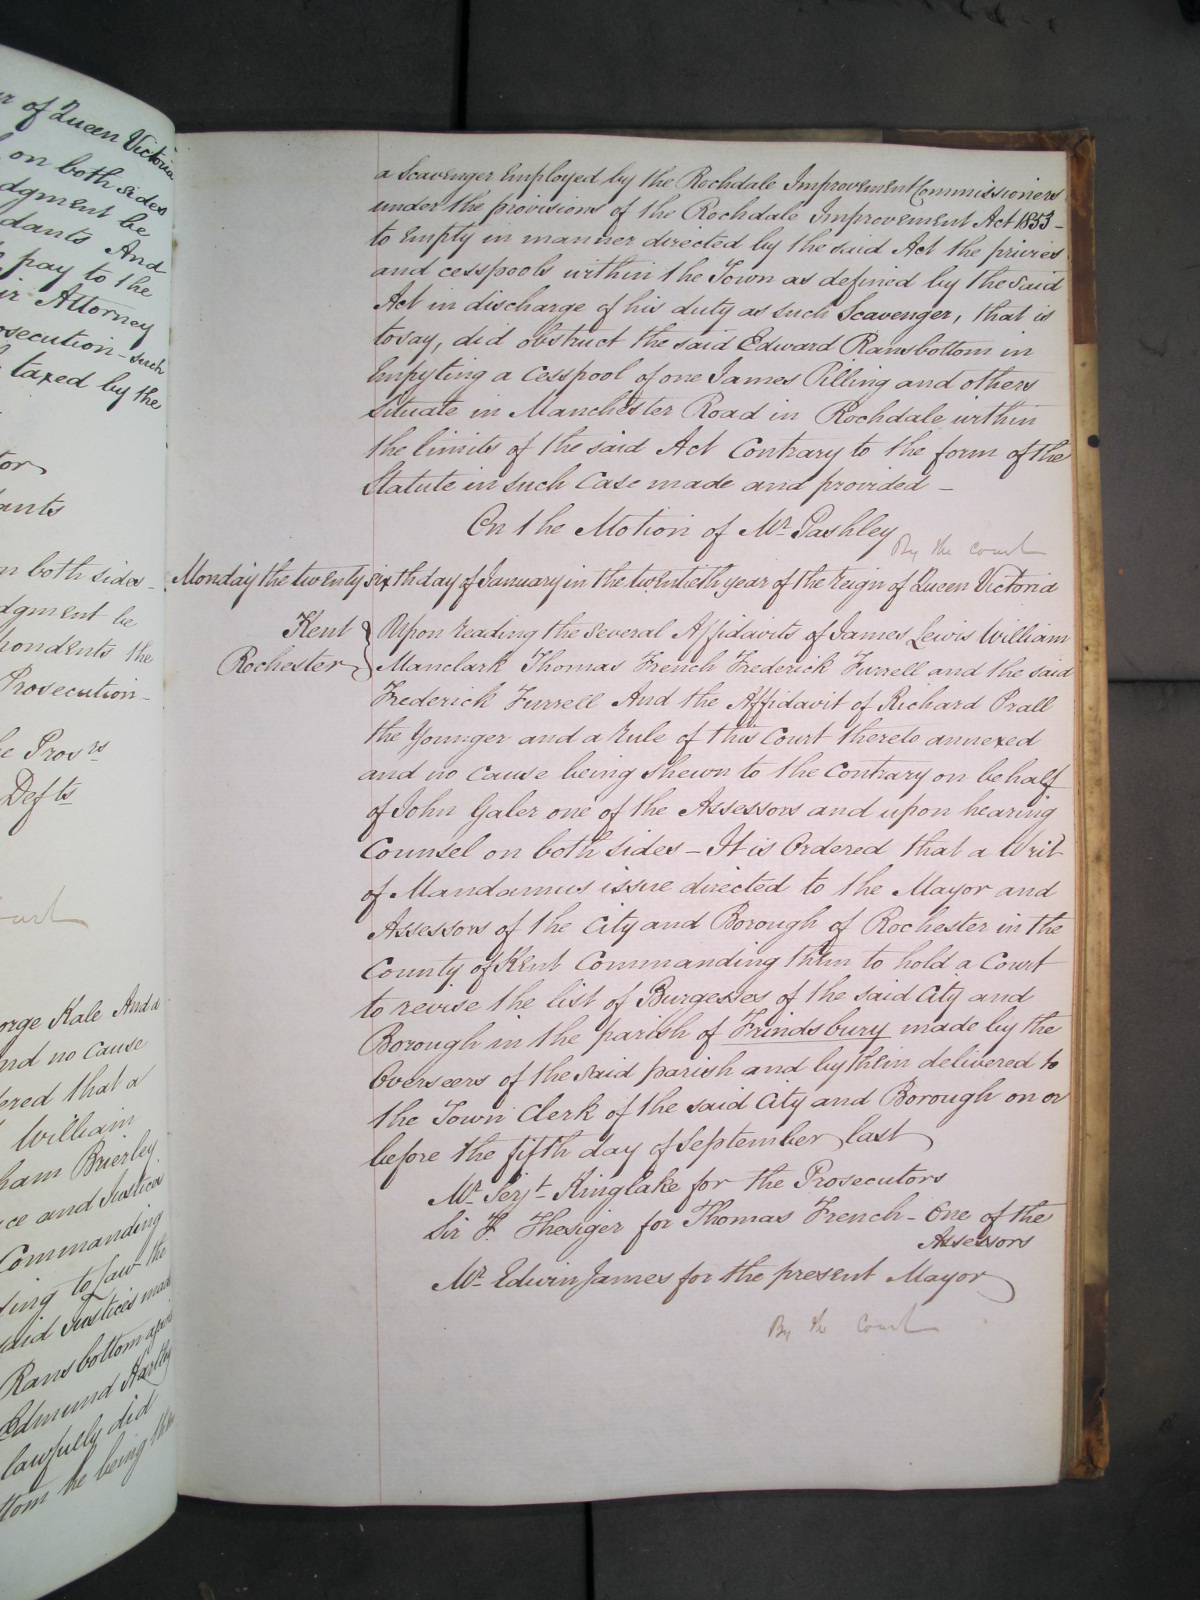 of Queen Victoria
on both sides
dgment be
dants And
pay to the
ir Attorney
osecution - such
taxed by the
tor
ants
n both sides -
dgment be
pondents the
Prosecution -
e Pros.rs
Defts
ourt
orge Kale And a
nd no cause
ered that a
William
ham Brierley
ce and Justices
Commanding
ding to Law the
said Justices made
Ransbottom upon
Edmund Hartley
lawfully did
ttom he being then
a Scavenger Employed by the Rochdale Improvement Commissioners
under the provisions of the Rochdale Improvement Act 1853 -
to Empty in manner directed by the said Act the privies
and cesspools within the Town as defined by the said
Act in discharge of his duty as such Scavenger, that is
to say, did obstruct the said Edward Ransbottom in
Empyting a Cesspool of one James Pilling and others
situate in Manchester Road in Rochdale within
the limits of the said Act Contrary to the form of the
Statute in such Case made and provided -
On the Motion of Mr. Pashley
By the court
Monday the twenty sixth day of January in the twentieth year of the reign of Queen Victoria
Kent
Rochester
Upon reading the several Affidavits of James Lewis William
Manclark Thomas French Frederick Furrell and the said
Frederick Furrell And the Affidavit of Richard Prall
the Younger and a Rule of this Court thereto annexed
and no cause being shewn to the contrary on behalf
of John Galer one of the Assessors and upon hearing
Counsel on both sides - It is Ordered that a Writ
of Mandamus issue directed to the Mayor and
Assessors of the City and Borough of Rochester in the
County of Kent Commanding them to hold a Court
to revise the list of Burgesses of the said City and
Borough in the parish of Frindsbury made by the
Overseers of the said parish and by them delivered to
the Town Clerk of the said City and Borough on or
before the fifth day of September last
Mr. Serjt. Kinglake for the Prosecutors
Sir F. Thesiger for Thomas French - One of the
Assessors
Mr. Edwin James for the present Mayor
By the Court